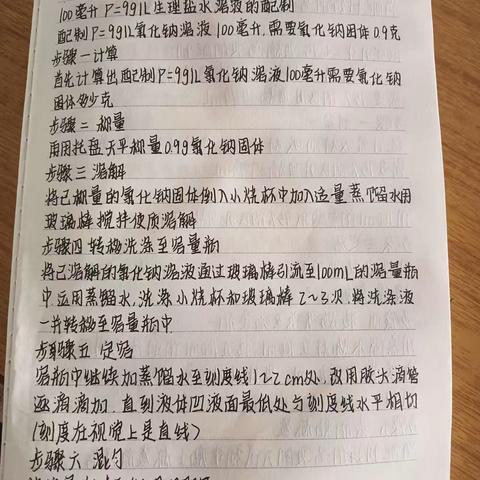 100毫升 P=9g1L生理盐水溶液的配制
配制P=9g1L氯化钠溶液100毫升,需要氯化钠固体0.9克
步骤一计算
首先计算出配制P=9g1L氯化钠溶液100毫升需要氯化钠
固体多少克
步骤二 称量
再用托盘天平称量0.9g氯化钠固体
步骤三 溶解
将已称量的氯化钠固体倒入小烧杯中加入适量蒸馏水用
玻璃棒搅拌使质溶解
步骤四 转移洗涤至容量瓶
将已溶解的氯化钠溶液通过玻璃棒引流至100mL的容量瓶
中.运用蒸馏水,洗涤小烧杯和玻璃棒2~3次.将洗涤液
一并转移至容量瓶中.
步骤五 定容
容瓶中继续加蒸馏水至刻度线1~2cm处.改用胶头滴管
逐滴滴加.直到液体凹液面最低处与刻度线水平相切
(刻度在视觉上是直线>
步骤六 混匀